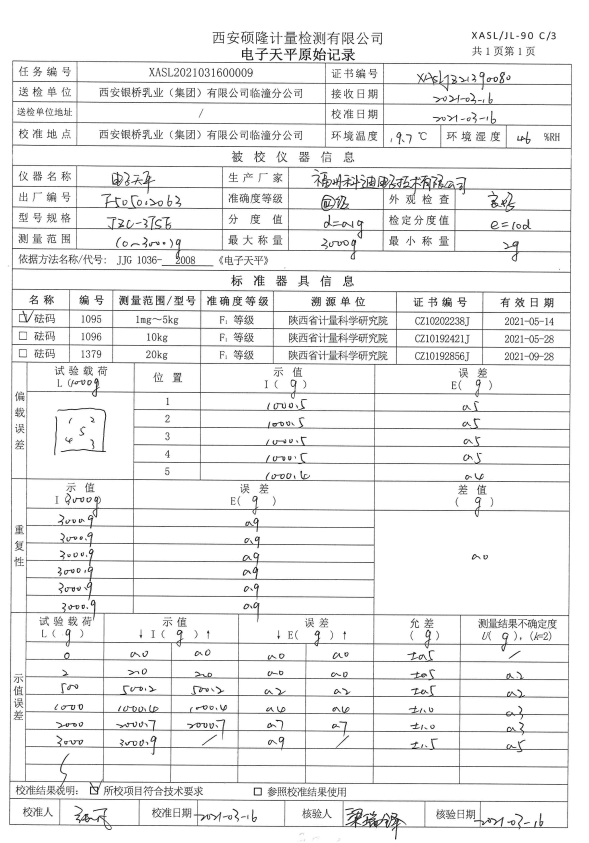 西安硕隆计量检测有限公司
XASL/JL-90 C/3
电子天平原始记录
共 1 页第 1 页
任务编号 XASL2021031600009 证书编号 XASLJZ21390080
送检单位 西安银桥乳业（集团）有限公司临潼分公司 接收日期 2021-03-16
送检单位地址 / 校准日期 2021-03-16
校准地点 西安银桥乳业（集团）有限公司临潼分公司 环境温度 19.7 ℃ 环境湿度 46 %RH
被校仪器信息
仪器名称 电子天平 生产厂家 福州科迪电子技术有限公司
出厂编号 F505012063 准确度等级 外观检查
型号规格 JZC-3TSE 分度值 d=0.1g 检定分度值 e=10d
测量范围 (0~3000)g 最大称量 3000g 最小称量 2g
依据方法名称/代号: JJG 1036- 2008 《电子天平》
标准器具信息
名称 编号 测量范围/型号 准确度等级 溯源单位 证书编号 有效日期
☑ 砝码 1095 1mg～5kg F₁ 等级 陕西省计量科学研究院 CZ10202238J 2021-05-14
□ 砝码 1096 10kg F₁ 等级 陕西省计量科学研究院 CZ10192421J 2021-05-28
□ 砝码 1379 20kg F₁ 等级 陕西省计量科学研究院 CZ10192856J 2021-09-28
偏载误差
试验载荷 L (1000g 位置 示值 I( g ) 误差 E( g )
1 2
5
4 3
1 1000.5 0.5
2 1000.5 0.5
3 1000.5 0.5
4 1000.5 0.5
5 1000.4 0.4
重复性
示值 I 3000g 误差 E( g ) 差值 ( g )
3000.9 0.9
3000.9 0.9
3000.9 0.9 0.0
3000.9 0.9
3000.9 0.9
3000.9 0.9
示值误差
试验载荷 L( g ) 示值 ↓ I( g ) ↑ 误差 ↓ E( g ) ↑ 允差 ( g ) 测量结果不确定度 U( g ), (k=2)
0 0.0 0.0 0.0 0.0 ±0.5 /
2 2.0 2.0 0.0 0.0 ±0.5 0.2
500 500.2 500.2 0.2 0.2 ±0.5 0.2
1000 1000.4 1000.4 0.4 0.4 ±1.0 0.3
2000 2000.7 2000.7 0.7 0.7 ±1.0 0.3
3000 3000.9 / 0.9 / ±1.5 0.5
校准结果说明: ☑ 所校项目符合技术要求 □ 参照校准结果使用
校准人 校准日期 2021-03-16 核验人 梁瑞锋 核验日期 2021-03-16